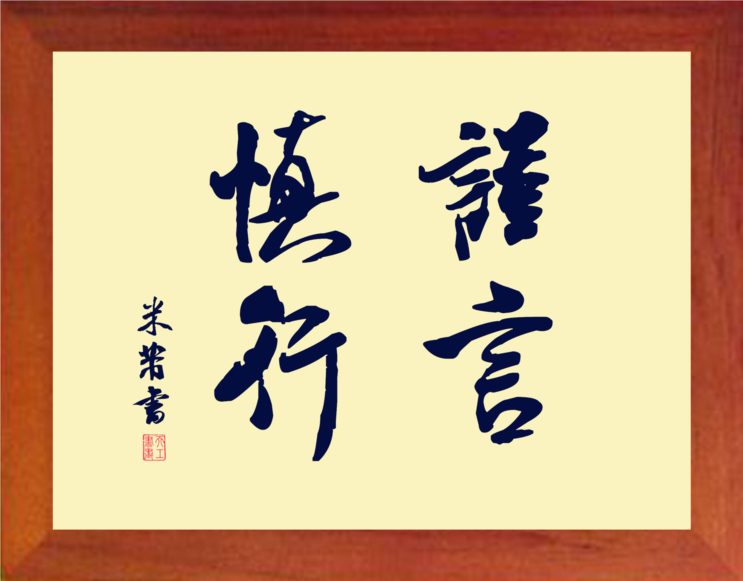 謹言
慎行
米芾書